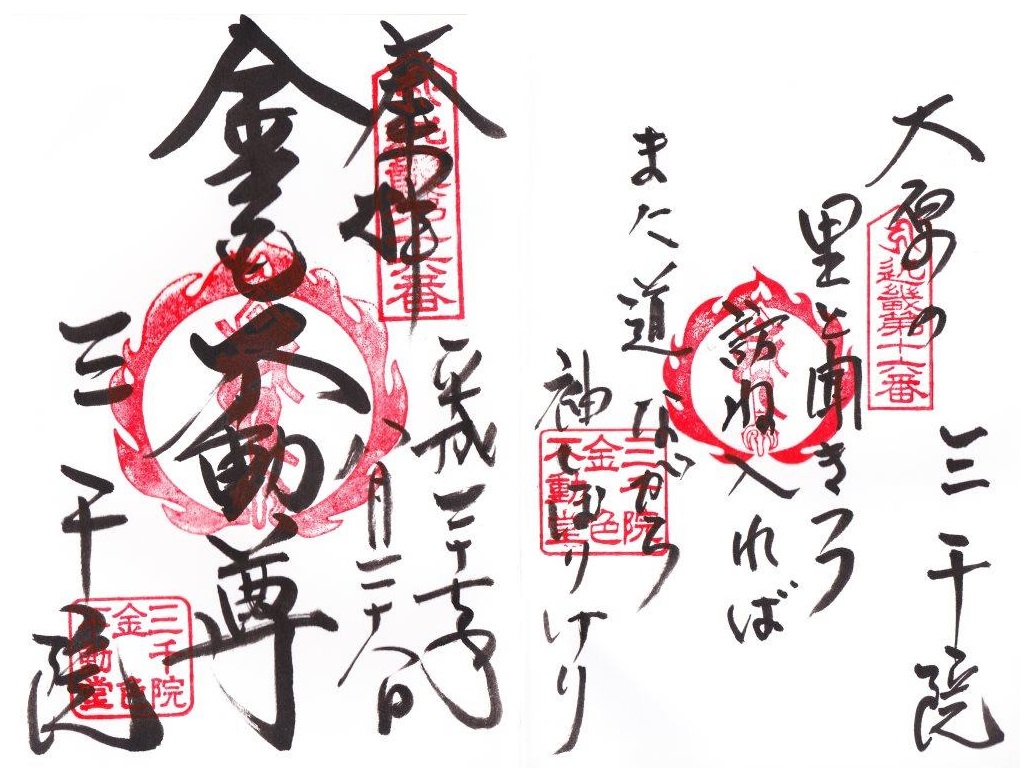 大原の
里と聞きつつ
訪ね入れば
また道ながら
袖しほりけり
三千院
近畿第十六番
三千院
金色
不動堂
奉拝
平成二十七年
八月二十八日
金色不動尊
三千院
三千院
金色
不動堂